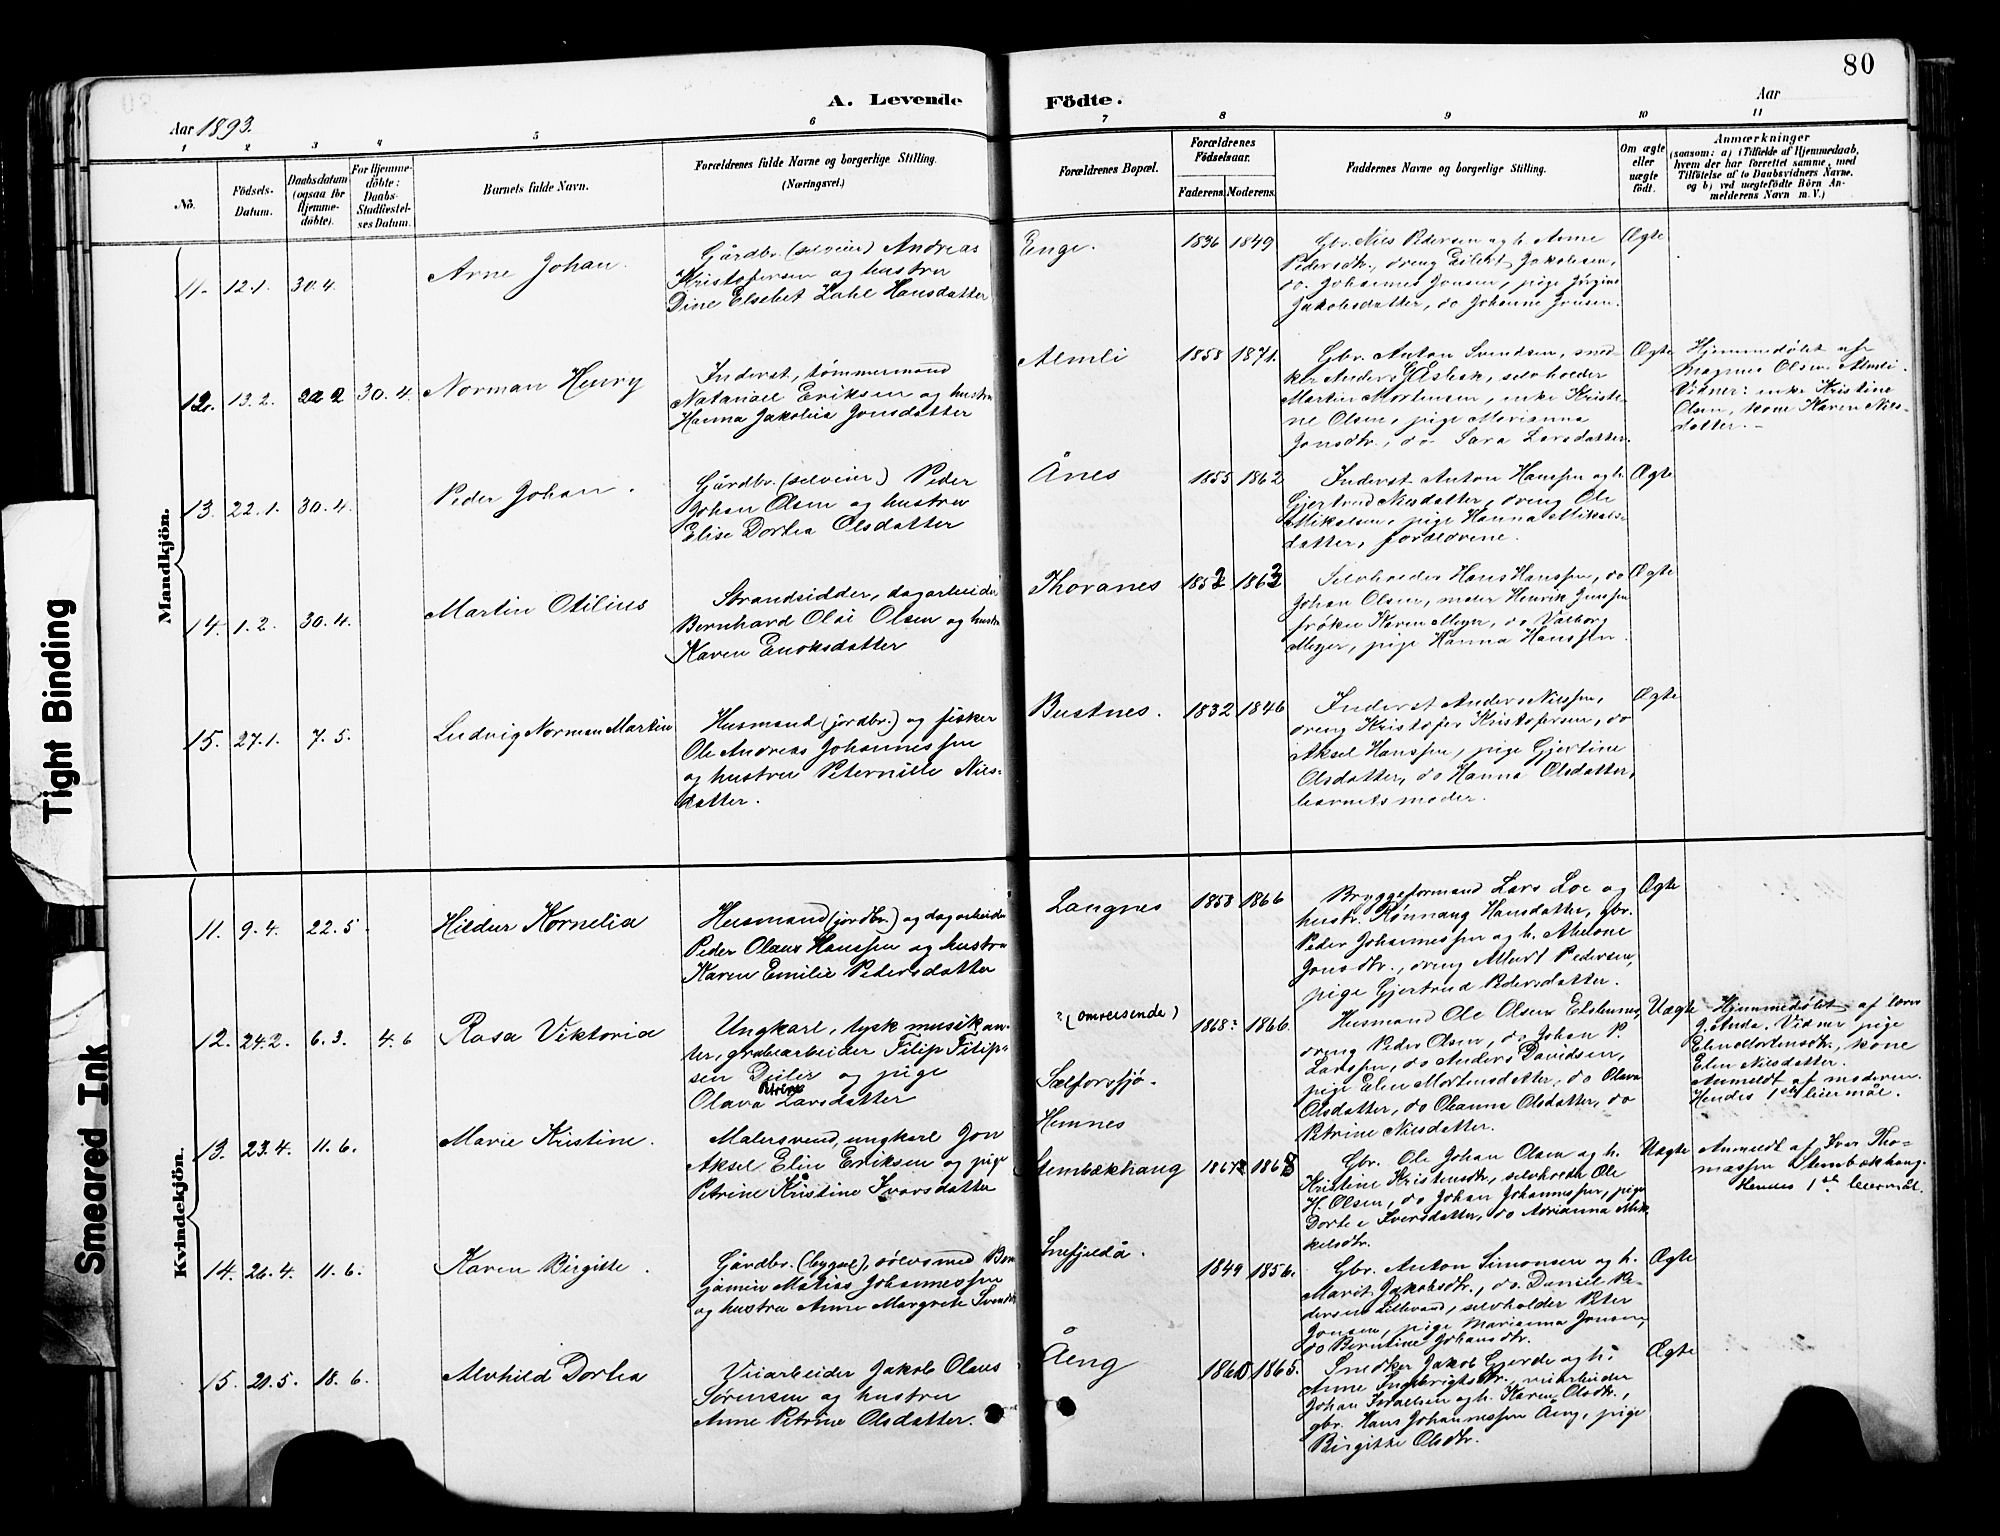 80
A. Levende Födte.
Aar 1893.
Aar
1 2 3 4 5 6 7 8 9 10 11
Nô.
Födsels-Datum.
Daabsdatum (ogsaa for Hjemmedöbte).
For Hjemmedöbte: Daabs-Stadfæstelses Datum.
Barnets fulde Navn.
Forældrenes fulde Navne og borgerlige Stilling.
(Næringsvei.)
Forældrenes Bopæl.
Forældrenes Födselsaar.
Faderens. Moderens.
Faddernes Navne og borgerlige Stilling.
Om ægte eller uægte födt.
Anmærkninger
(saasom: a) i Tilfælde af Hjemmedaab,
hvem der har forrettet samme, med
Tilföielse af to Daabsvidners Navne.
og b) ved uægtefödte Börn An-
melderens Navn m. V.)
Mandkjön.
11. 12.1. 30.4.
Arne Johan.
Gårdbr. (selveier) Andreas
Kristofersen og hustru
Dine Elsebet Zahl Hansdatter
Enge.
1836 1849
Gbr. Niels Pedersen og h. Anne
Pedersdtr., dreng Eilert Jakobsen,
do. Johannes Jonsen, pige Jörgine
Jakobsdatter, do Johanne Jonsen.
Ægte
12. 13.2. 22 2 30.4.
Norman Henry
Inderst, tømmermand
Natanael Eriksen og hustru
Hanna Jakobia Jonsdatter
Almli
1858 1871.
Gbr. Anton Svendsen, sned-
ker Anders Elsbak, selvholder
Martin Mortensen, enke Kristi-
ne Olsen, pige Marianna
Jonsdtr., do Sara Larsdatter.
Ægte
Hjemmedøbt af
Magnus Olsen Almli.
Vidner: enke Kristine
Olsen, kone Karen Niels-
datter.
13. 22.1. 30.4.
Peder Johan.
Gårdbr. (selveier) Peder
Johan Olsen og hustru
Elise Dortea Olsdatter
Ånes
1855 1862
Inderst Anton Hanssen og h.
Gjertrud Nilsdatter, dreng Ole
Mikalsen, pige Hanna Mikals-
datter, forældrene.
Ægte
14. 1.2. 30.4.
Martin Otilius
Strandsidder, dagarbeider
Bernhard Olai Olsen og hustru
Karen Enoksdatter
Thoranes
1852 1863
Selvholder Hans Hanssen, do
Johan Olsen, maler Henrik Jenssen
frøken Karen Meyer, do Valborg
Meyer, pige Hanna Hanssen.
Ægte
15. 27.1. 7.5.
Ludvig Norman Martin
Husmand (jordbr.) og fisker
Ole Andreas Johannessen
og hustru Peternille Niels-
datter.
Bustnes.
1832 1846
Inderst Anders Nilssen,
dreng Kristofer Kristofersen, do
Aksel Hanssen, pige Gjertine
Olsdatter, do Hanna Olsdatter,
barnets moder.
Ægte
Kvindekjön.
11. 9.4. 22.5.
Hildur Kornelia
Husmand (jordbr.) og dagarbeider
Peder Olaus Hanssen og hustru
Karen Emilie Pedersdatter
Langnes
1858 1866
Bryggeformand Lars Loe og
hustr. Rønnaug Hansdatter, gbr.
Peder Johannessen og h. Abelone
Jonsdtr., dreng Albert Pedersen,
pige Gjertrud Pedersdatter.
Ægte
12. 24.2. 6.3. 4.6
Rosa Viktoria
Ungkarl, tysk musikan-
ter, grubearbeider Filip Filip-
sen Deiler og pige
Olava Petrine Larsdatter
? (omreisende)
Sælforsfjø.
Hemnes
1868? 1866.
Husmand Ole Olsen Elshunes,
dreng Peder Olsen, do Johan P.
Larssen, do Anders Davidsen,
pige Elen Mortensdatter, do Olava
Olsdatter, do Oleanna Olsdatter, do
Petrine Nilsdatter.
Uægte
Hjemmedøbt af lærer
J. Anda. Vidner pige
Elen Mortensdtr., kone
Elen Nilsdatter.
Anmeldt af moderen.
Hendes 1ste leiermål.
13. 23.4. 11.6.
Marie Kristine.
Malersvend, ungkarl Jon
Aksel Elin Eriksen og pige
Petrine Kristine Ivarsdatter
Stenbækhang
1867 1868
Gbr. Ole Johan Olsen og h.
Kristine Kristensdtr., selvholder Ole
H. Olsen, do Johan Johannessen, pige
Dorte Iversdatter, do Adrianna Mik-
kelsdtr.
Uægte
Anmeldt af Iver Tho-
massen Stenbækhang.
Hendes 1ste leiermål.
14. 26.4. 11.6.
Karen Birgitte.
Gårdbr. (bygsel), sølvsmed Ben-
jamin Matias Johannessen
og hustru Anne Margrete Svendsdtr
Snefjeldå.
1849 1856.
Gbr. Anton Simonsen og h.
Marit Jakobsdtr., do. Daniel Pe-
dersen Lillerand, selvholder Peter
Jonsen, pige Marianna Jonsen,
do Berntine Johansdtr.
Ægte
15. 21.5. 18.6.
Alvhild Dortea
Veiarbeider Jakob Olaus
Sørensen og hustru
Anne Petrine Olsdatter.
Åeng
1860 1865.
Snedker Jakob Gjerde og h.
Anne Ingebrigtsdtr., veiarbeider
Johan Israelsen og h. Karen Olsdtr.,
gbr. Hans Johannessen Åeng, pige
Birgitte Olsdtr.
Ægte
Tight Binding
Smeared Ink